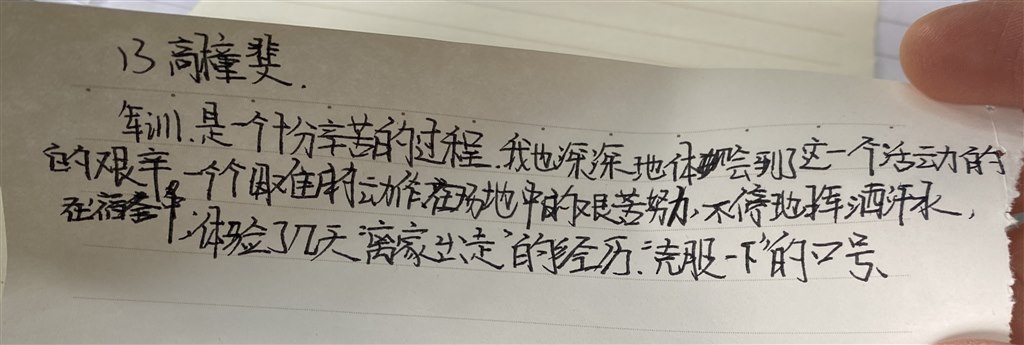 13 高橦斐.
军训、是一个十分辛苦的过程.我也深深地体会到了这一个活动的
的艰辛.一个个困难的动作,在场地中的艰苦努力,不停地挥洒汗水,
在宿舍中,体验了几天“离家出走”的经历.“克服一下”的口号、